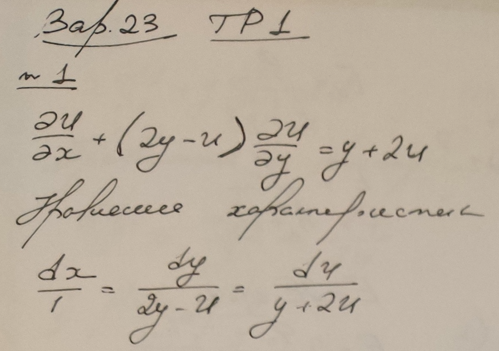 Вар. 23 ТР 1
№ 1
∂u/∂x + (2y - u) ∂u/∂y = y + 2u
Уравнение характеристик
dx/1 = dy/(2y - u) = du/(y + 2u)